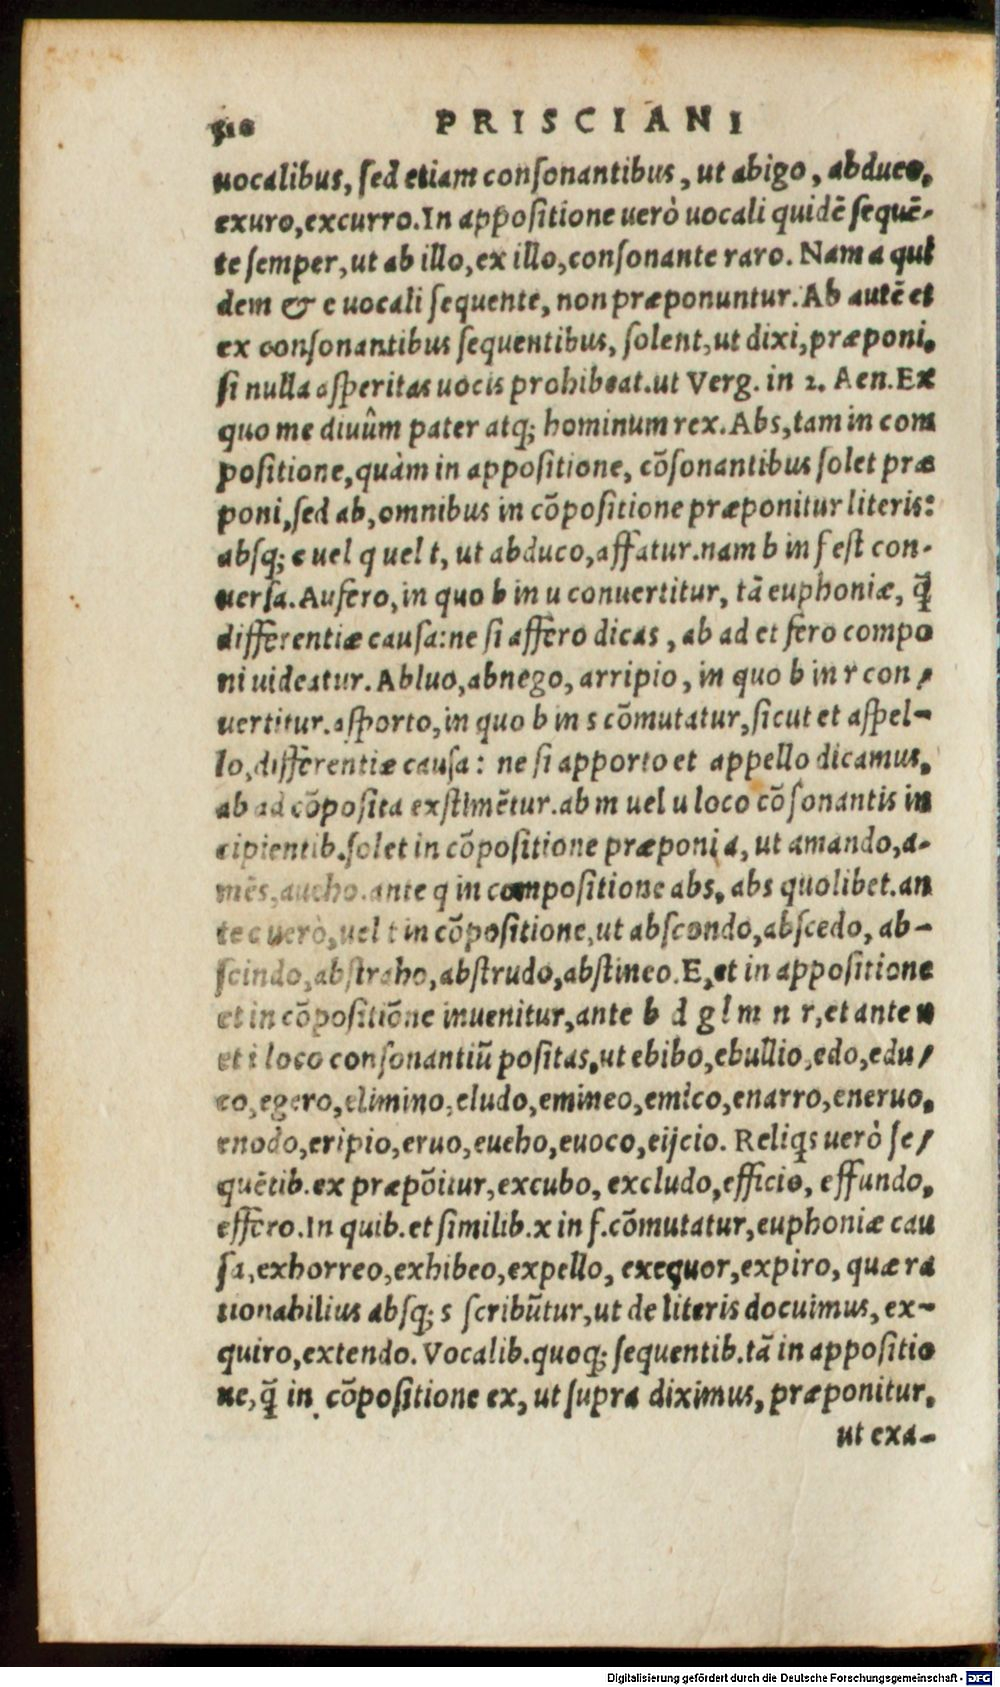 510 PRISCIANI
uocalibus, ſed etiam conſonantibus, ut abigo, abduco,
exuro, excurro. In appoſitione uerò uocali quidē ſequē-
te ſemper, ut ab illo, ex illo, conſonante raro. Nam a qui
dem & e uocali ſequente, non præponuntur. Ab autē et
ex conſonantibus ſequentibus, ſolent, ut dixi, præponi,
ſi nulla aſperitas uocis prohibeat. ut Verg. in 2. Aen. Ex
quo me diuûm pater atq; hominum rex. Abs, tam in com
poſitione, quàm in appoſitione, cōſonantibus ſolet præ
poni, ſed ab, omnibus in cōpoſitione præponitur literis:
abſq; c uel q uel t, ut abduco, affatur. nam b in f eſt con-
uerſa. Aufero, in quo b in u conuertitur, tā euphoniæ, q̄
differentiæ cauſa: ne ſi affero dicas, ab ad et fero compo
ni uideatur. Abluo, abnego, arripio, in quo b in r con-
uertitur. aſporto, in quo b in s cōmutatur, ſicut et aſpel-
lo, differentiæ cauſa: ne ſi apporto et appello dicamus,
ab ad cōpoſita exſtimētur. ab m uel u loco cōſonantis in
cipientib. ſolet in cōpoſitione præponi a, ut amando, a-
mēs, aueho. ante q in compoſitione abs, abs quolibet. an
te c uerò, uel t in cōpoſitione, ut abſcondo, abſcedo, ab-
ſcindo, abſtraho, abſtrudo, abſtineo. E, et in appoſitione
et in cōpoſitiōne inuenitur, ante b d g l m n r, et ante u
et i loco conſonantiū poſitas, ut ebibo, ebullio, edo, edu-
co, egero, elimino, eludo, emineo, emico, enarro, eneruo,
enodo, eripio, eruo, eueho, euoco, eijcio. Reliqs uerò ſe-
quētib. ex præpōitur, excubo, excludo, efficio, effundo,
effero. In quib. et ſimilib. x in f. cōmutatur, euphoniæ cau
ſa, exhorreo, exhibeo, expello, exequor, expiro, quæ ra
tionabilius abſq; s ſcribūtur, ut de literis docuimus, ex-
quiro, extendo. Vocalib. quoq; ſequentib. tā in appoſitio
ne, q̄ in cōpoſitione ex, ut ſupra diximus, præponitur,
ut exa-
Digitalisierung gefördert durch die Deutsche Forschungsgemeinschaft - DFG